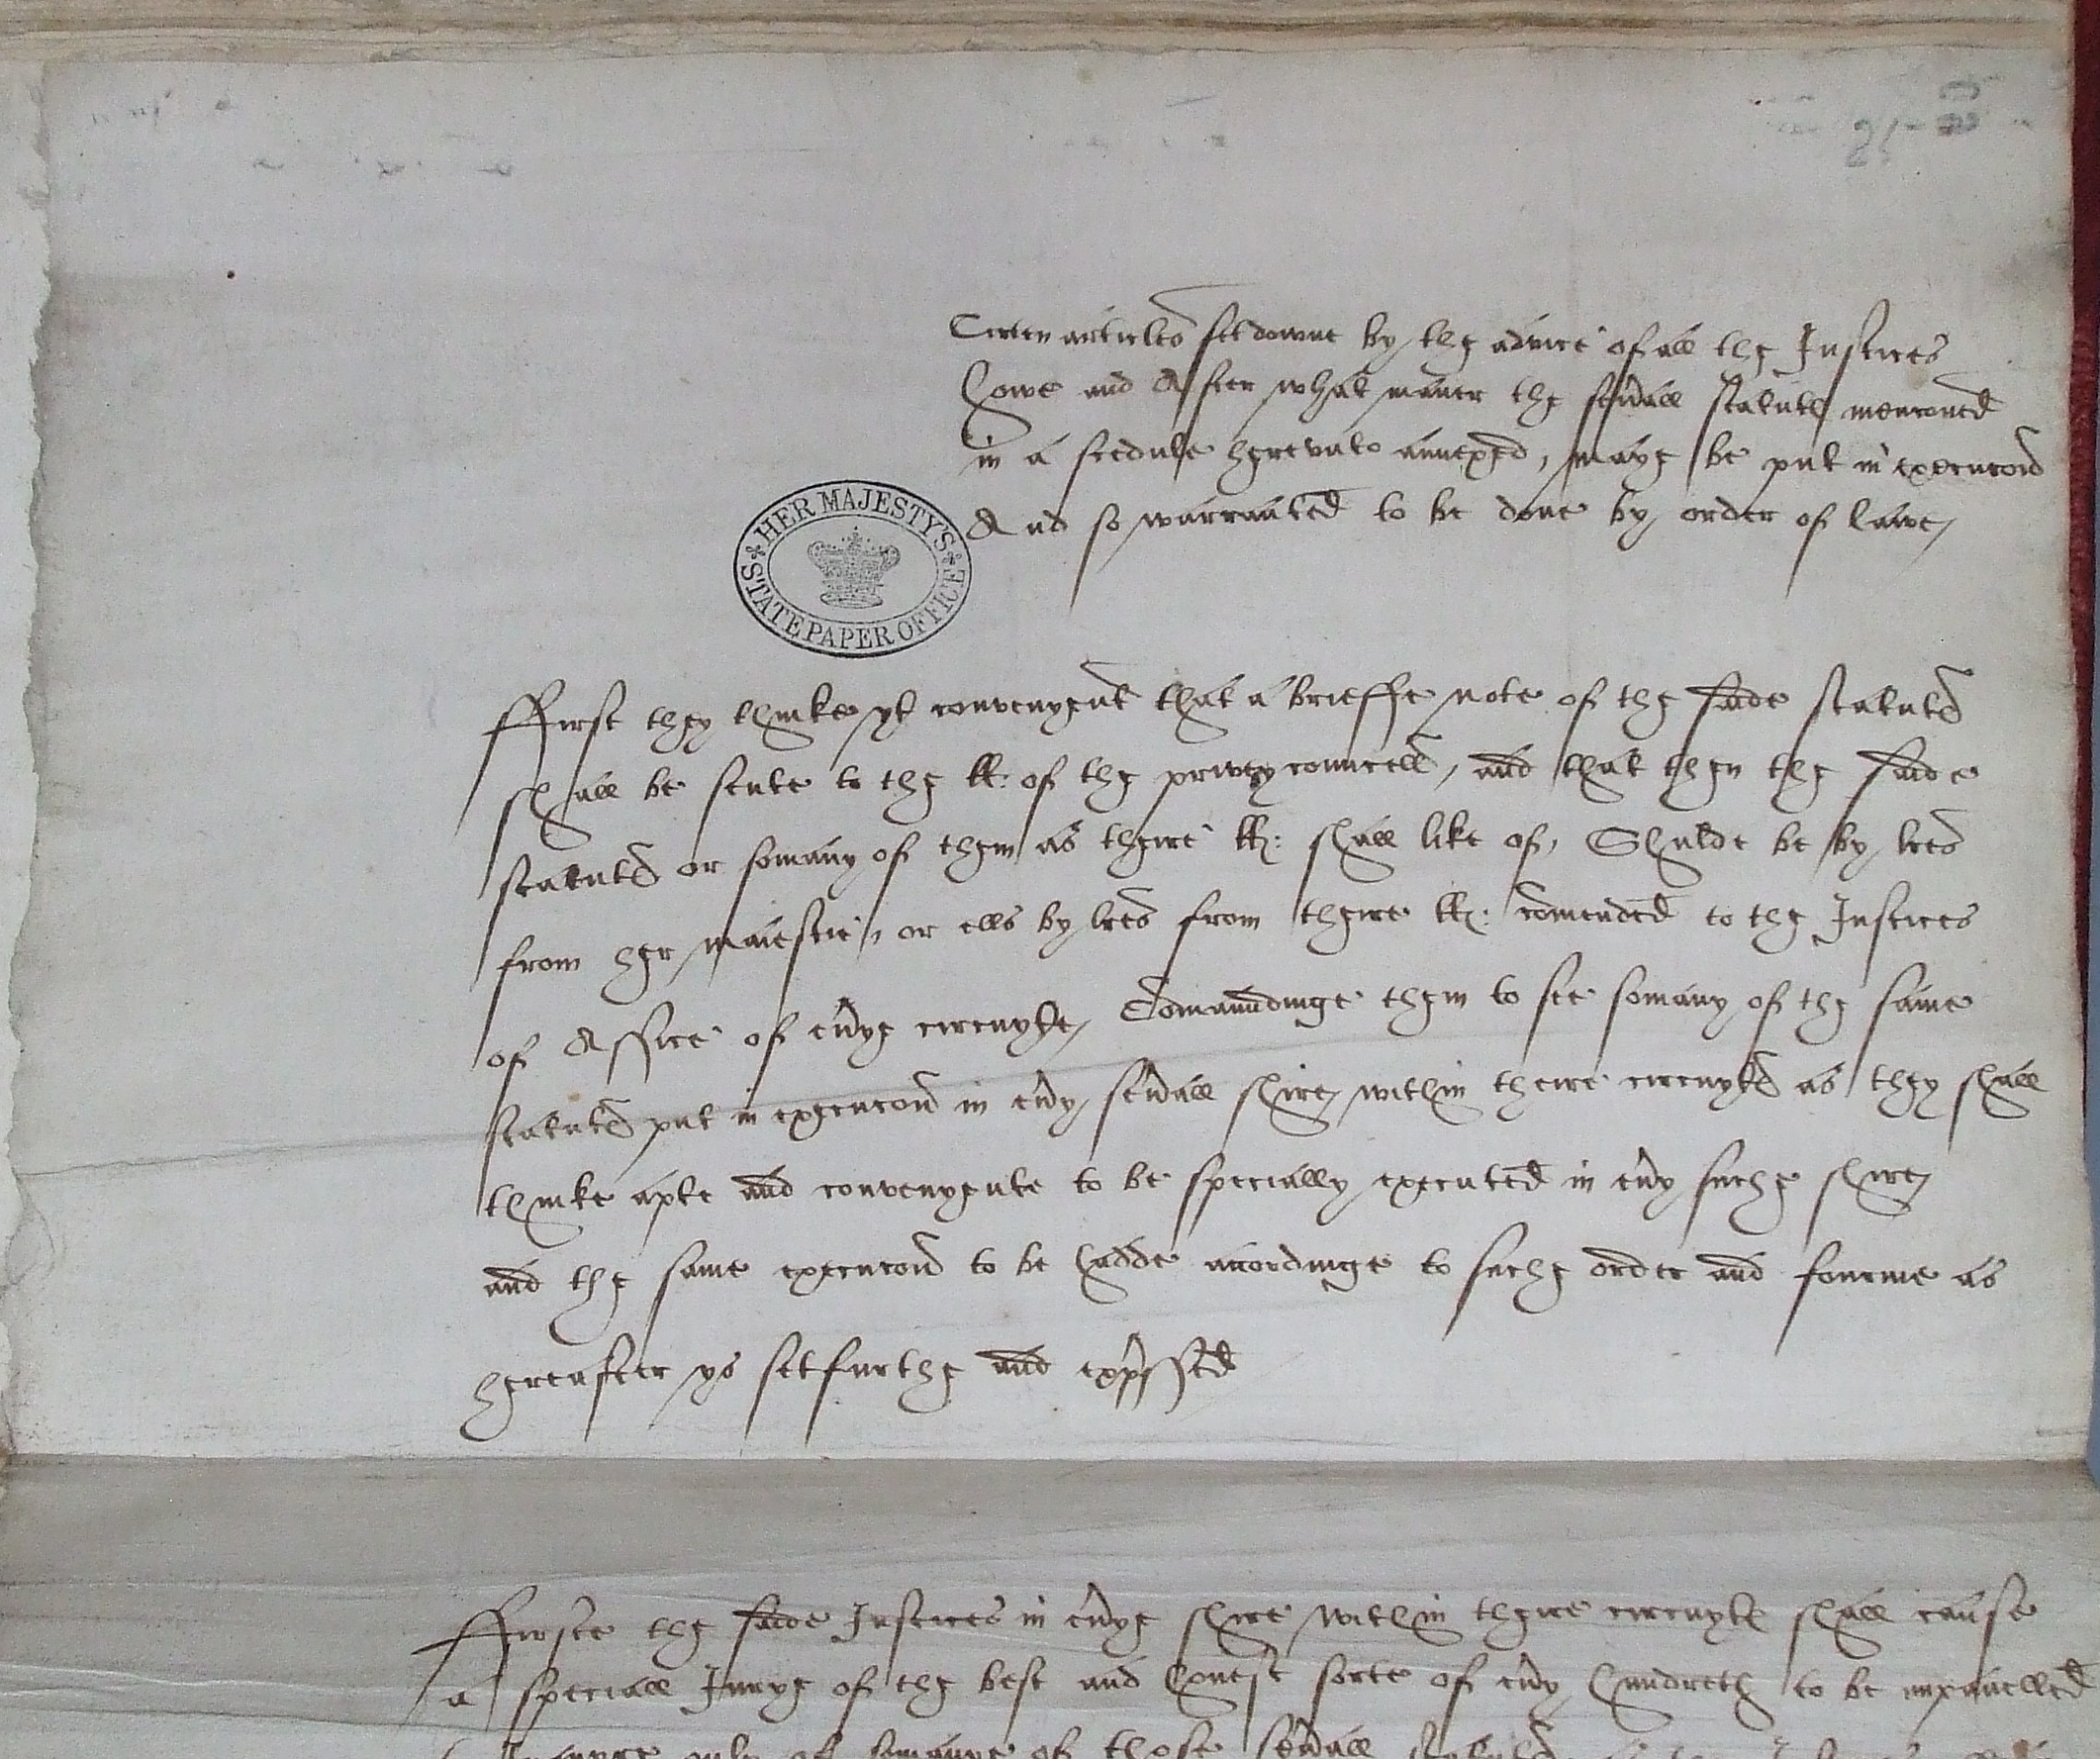 Certen articles set downe by the advice of all the Justices
howe and After what maner the seuall statute menconed
in a scedule herevnto annexed, maye be put in execucon
And so warranted to be done by order of lawe
HER MAJESTY'S STATE PAPER OFFICE
ffirst they thinke yt convenyent that a brieffe note of the saide statute
shall be sente to the ll: of the privey councell, and that then the saide
statute or somany of them as theire ll: shall like of, Shulde be by lres
from her maiestie, or ells by lres from theire ll: comended to the Justices
of Assice of euye circuyte, Comaundinge them to see somany of the same
statute put in execucon in euy seuall shire within theire circuyte as they shall
thinke apte and convenyente to be specially executed in euy suche shire
and the same execucon to be hadde accordinge to suche order and fourme as
hereafter ys setfurthe and expssed
ffirste the saide Justices in euye shire within theire circuyte shall cause
a speciall Jurye of the best and honest sorte of euy hundreth to be inpanelled
only of somanye of those seuall statute